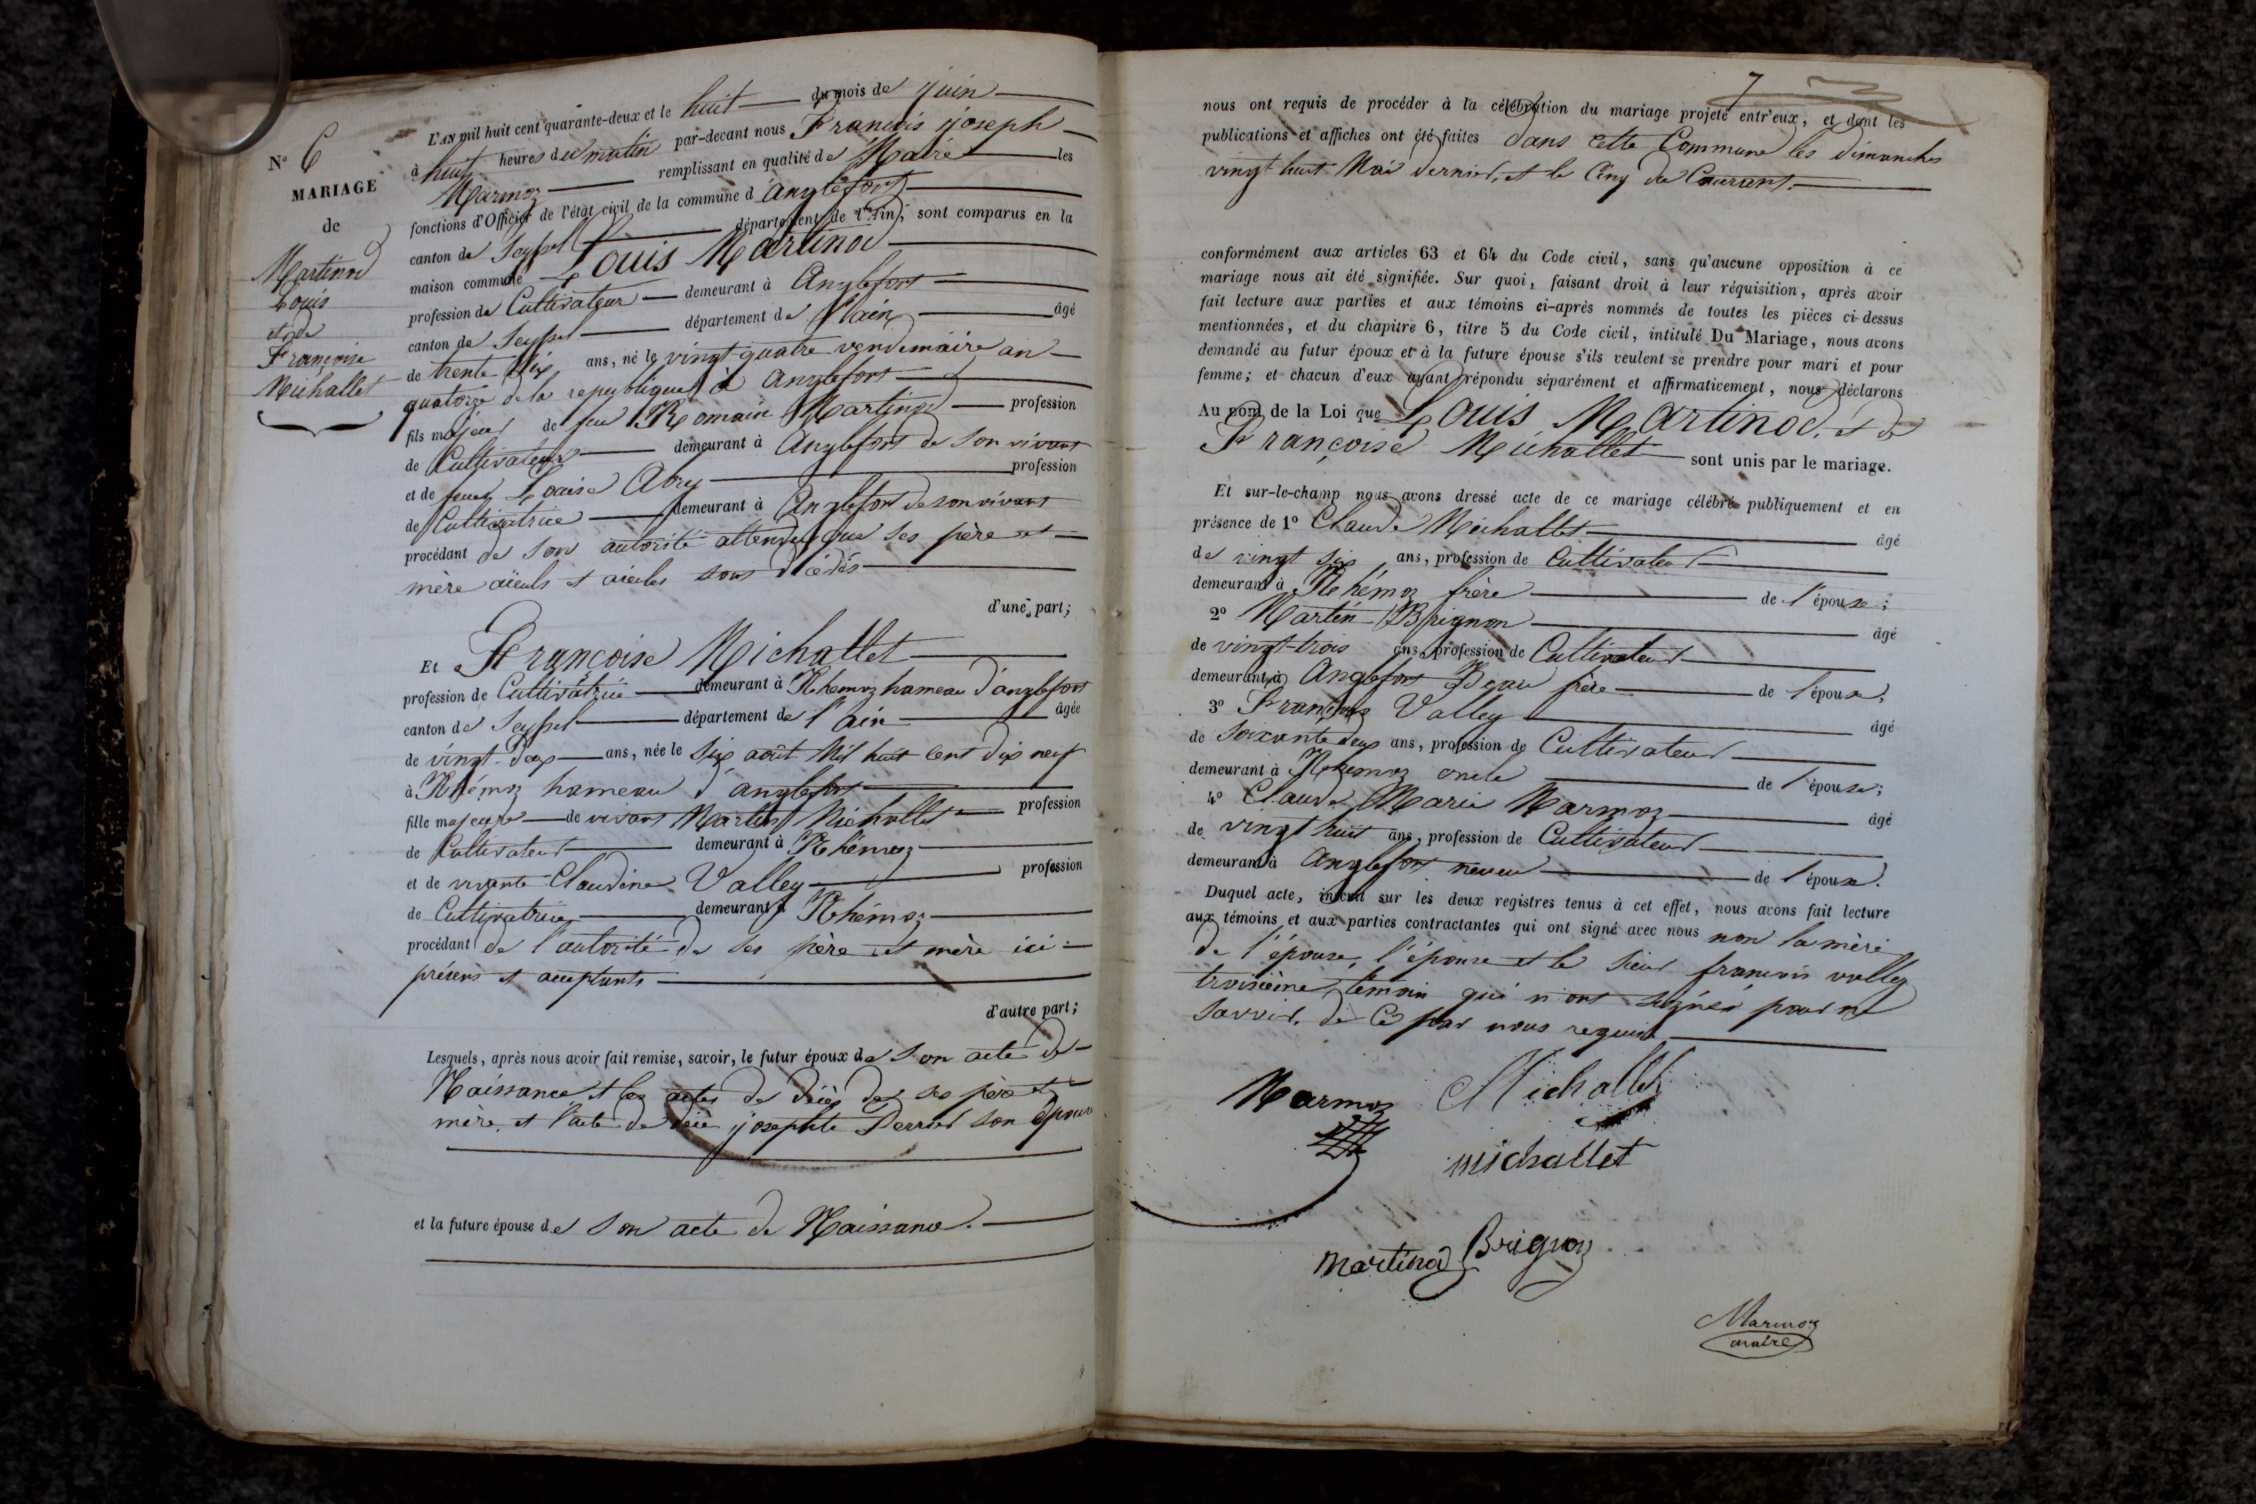 N° 6
MARIAGE
de
Martinod
Louis
et de
Françoise
Michallet
L'an mil huit cent quarante-deux et le huit du mois de juin
à huit heures du matin par-devant nous François joseph
Marmoz remplissant en qualité de Maire les
fonctions d'Officier de l'état civil de la commune d'anglefort
canton de Seyssel département de l'Ain, sont comparus en la
maison commune Louis Martinod
profession de Cultivateur demeurant à Anglefort
canton de Seyssel département de l'ain âgé
de trente six ans, né le vingt quatre vendemiaire an
quatorze de la republique à anglefort
fils majeur de feu Romain Martinod profession
de Cultivateur demeurant à Anglefort de son vivant
et de feue Louise Abry profession
de Cultivatrice demeurant à Anglefort de son vivant
procédant de son autorité attendu que ses père et
mère aïeuls et aieules sont décédés
d'une part;
Et Françoise Michallet
profession de Cultivatrice demeurant à Rhémoz hameau d'anglefort
canton de Seyssel département de l'ain âgée
de vingt-deux ans, née le six août Mil huit cent dix neuf
à Rhémoz hameau d'anglefort
fille majeure de vivant Martin Michallet profession
de Cultivateur demeurant à Rhémoz
et de vivante Claudine Valley profession
de Cultivatrice demeurant à Rhémoz
procédant de l'autorité de ses père et mère ici
présens et acceptants
d'autre part;
Lesquels, après nous avoir fait remise, savoir, le futur époux de son acte de
Naissance et les actes de décès de ses père et
mère, et l'acte de décès josephte Perrier son épouse
et la future épouse de son acte de Naissance.
7
nous ont requis de procéder à la célébration du mariage projeté entr'eux, et dont les
publications et affiches ont été faites dans cette Commune les dimanches
vingt huit Mai dernier, et le Cinq du Courant.
conformément aux articles 63 et 64 du Code civil, sans qu'aucune opposition à ce
mariage nous ait été signifiée. Sur quoi, faisant droit à leur réquisition, après avoir
fait lecture aux parties et aux témoins ci-après nommés de toutes les pièces ci-dessus
mentionnées, et du chapitre 6, titre 5 du Code civil, intitulé Du Mariage, nous avons
demandé au futur époux et à la future épouse s'ils veulent se prendre pour mari et pour
femme; et chacun d'eux ayant répondu séparément et affirmativement, nous déclarons
Au nom de la Loi que Louis Martinod, et de
Françoise Michallet sont unis par le mariage.
Et sur-le-champ nous avons dressé acte de ce mariage célébré publiquement et en
présence de 1° Claude Michallet âgé
de vingt six ans, profession de Cultivateur
demeurant à Rhémoz frère de l'épouse;
2° Martin Brignon âgé
de vingt-trois ans, profession de Cultivateur
demeurant à Anglefort Beau frère de l'épouse;
3° François Valley âgé
de soixante deux ans, profession de Cultivateur
demeurant à Rhémoz oncle de l'épouse;
4° Claude Marie Marmoz âgé
de vingt huit ans, profession de Cultivateur
demeurant à anglefort neveu de l'épouse.
Duquel acte, inscrit sur les deux registres tenus à cet effet, nous avons fait lecture
aux témoins et aux parties contractantes qui ont signé avec nous non la mère
de l'épouse, l'épouse et le Sieur françois valley
troisième témoin qui n'ont signés pour ne
savoir, de ce par nous requis
Marmoz Michallet
michallet
Martinod Brignon
Marmoz
maire